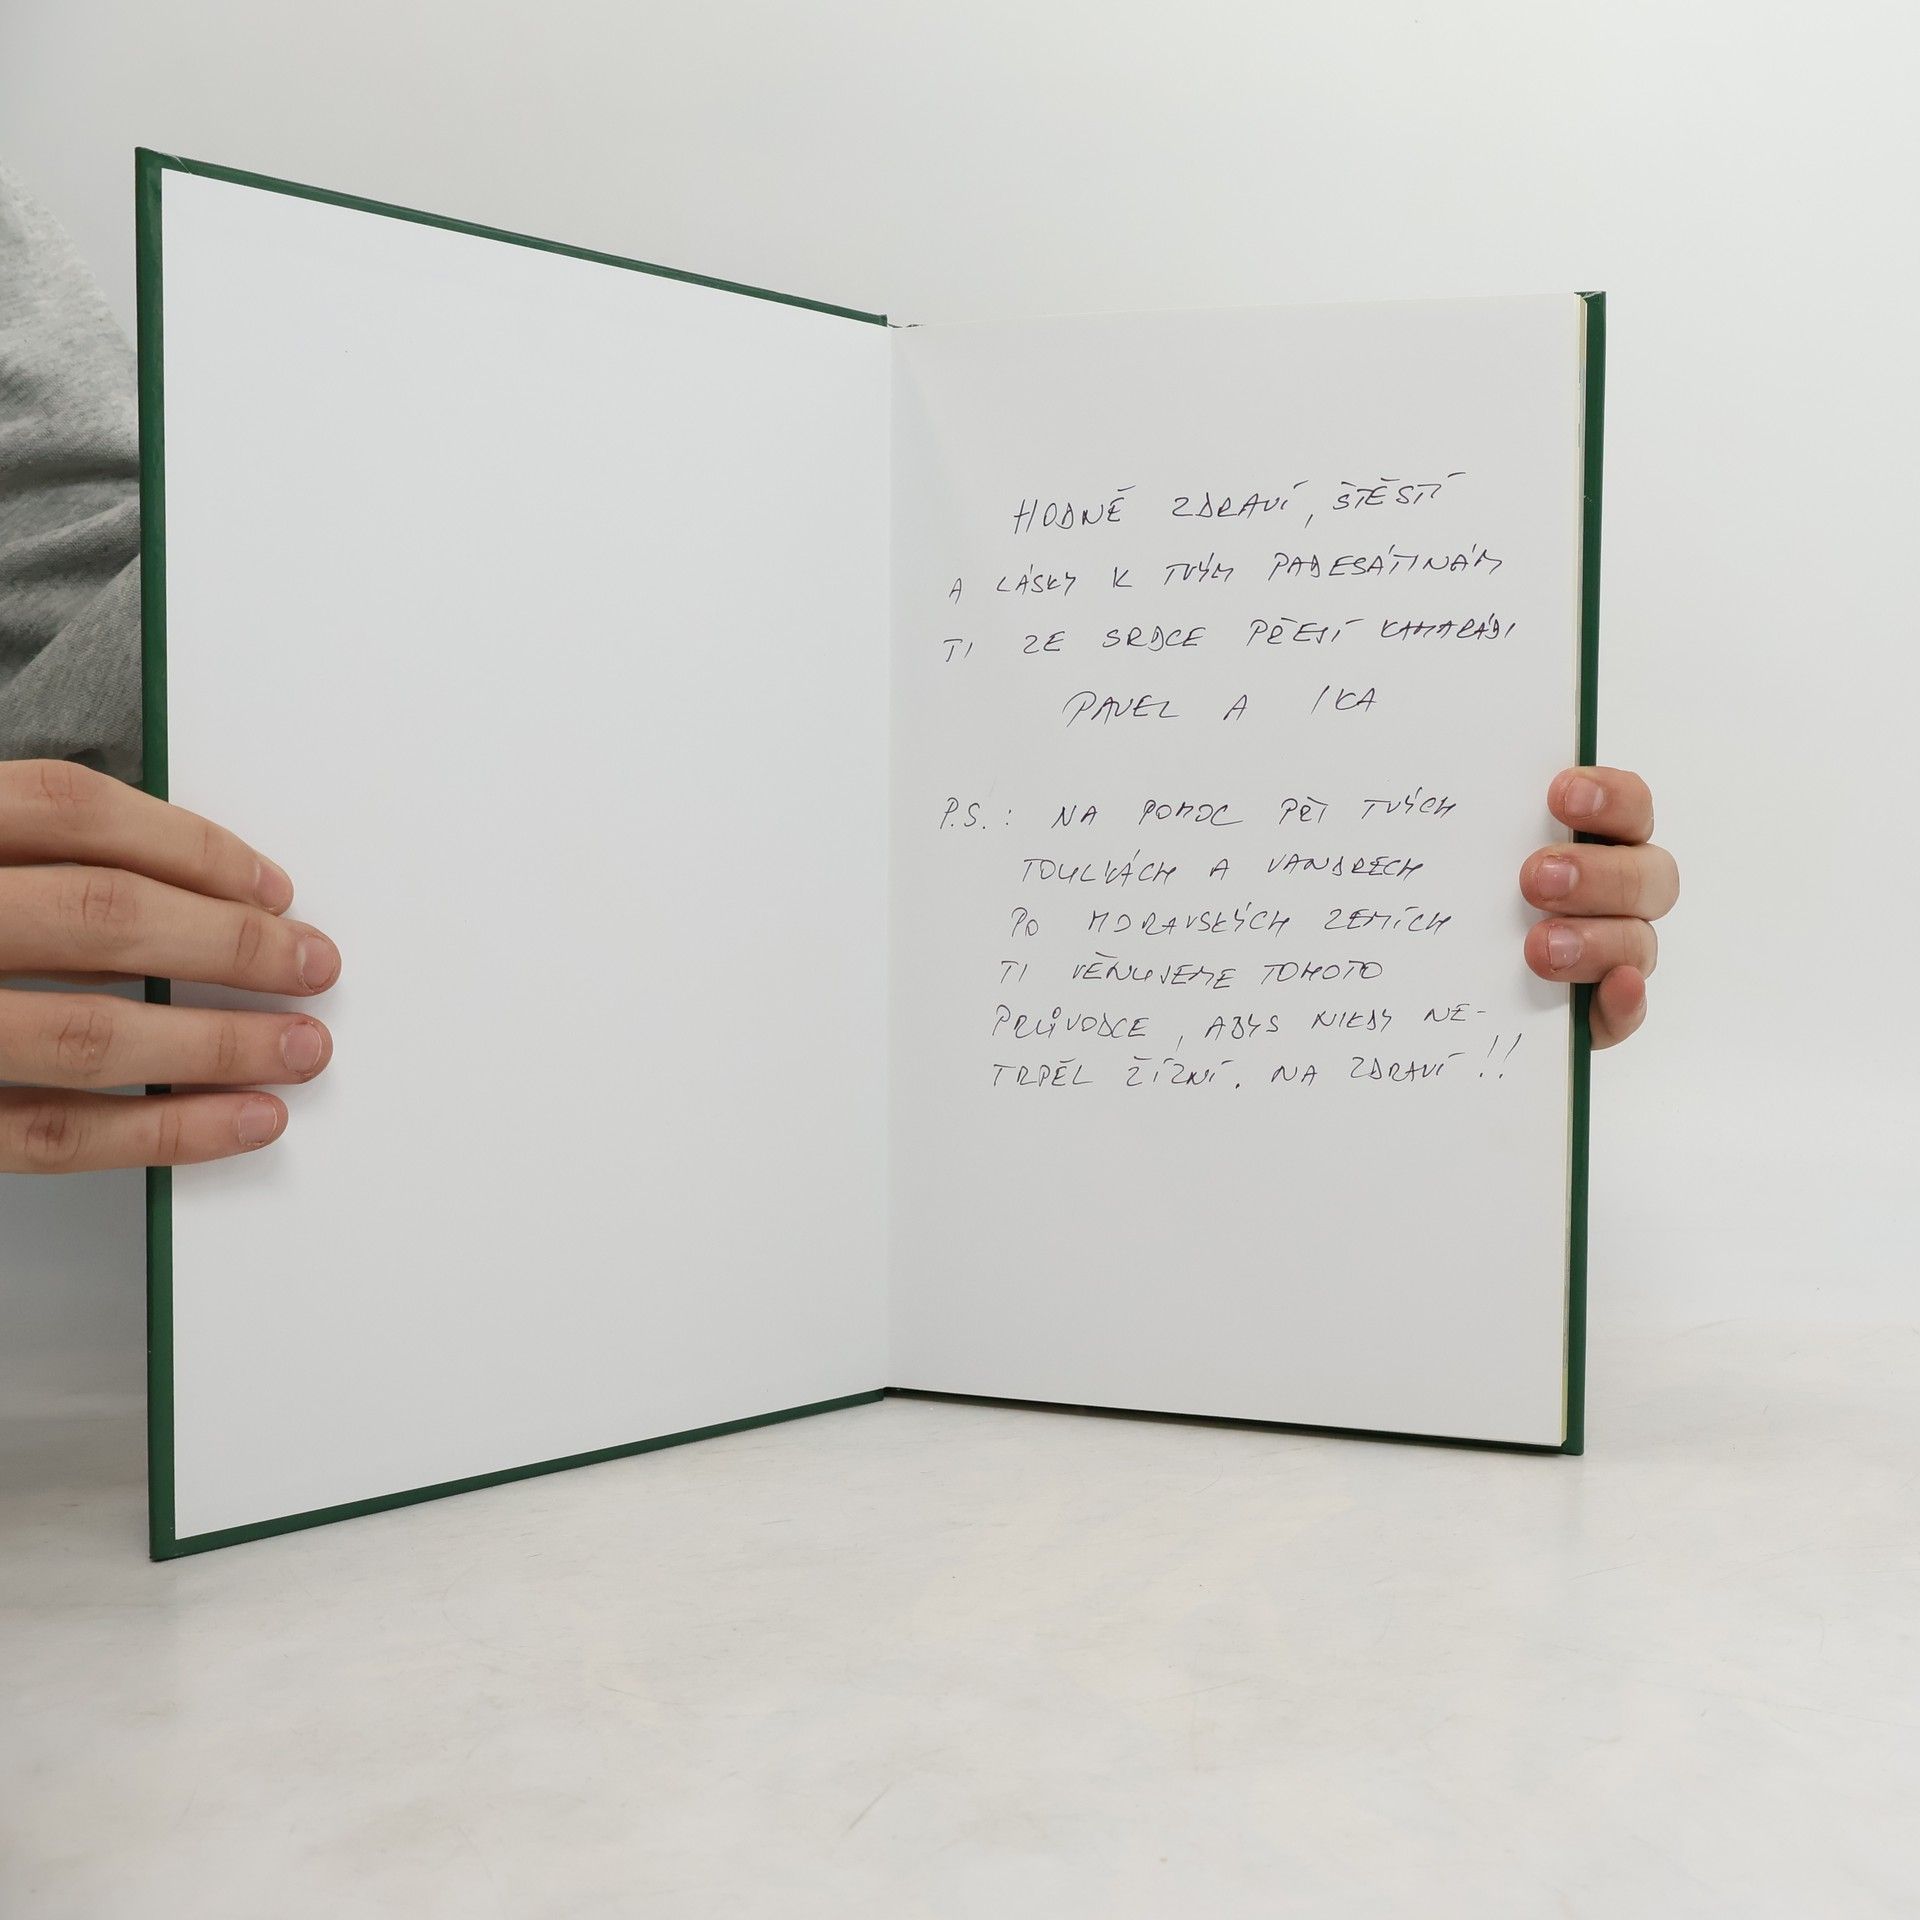 HODNĚ ZDRAVÍ, ŠTĚSTÍ
A LÁSKY K TVÝM PADESÁTINÁM
TI ZE SRDCE PŘEJÍ KAMARÁDI
PAVEL A IKA
P.S.: NA POMOC PŘI TVÝCH
TOULKÁCH A VANDRECH
PO MORAVSKÝCH ZEMÍCH
TI VĚNUJEME TOHOTO
PRŮVODCE, ABYS NIKDY NE-
TRPĚL ŽÍZNÍ. NA ZDRAVÍ!!